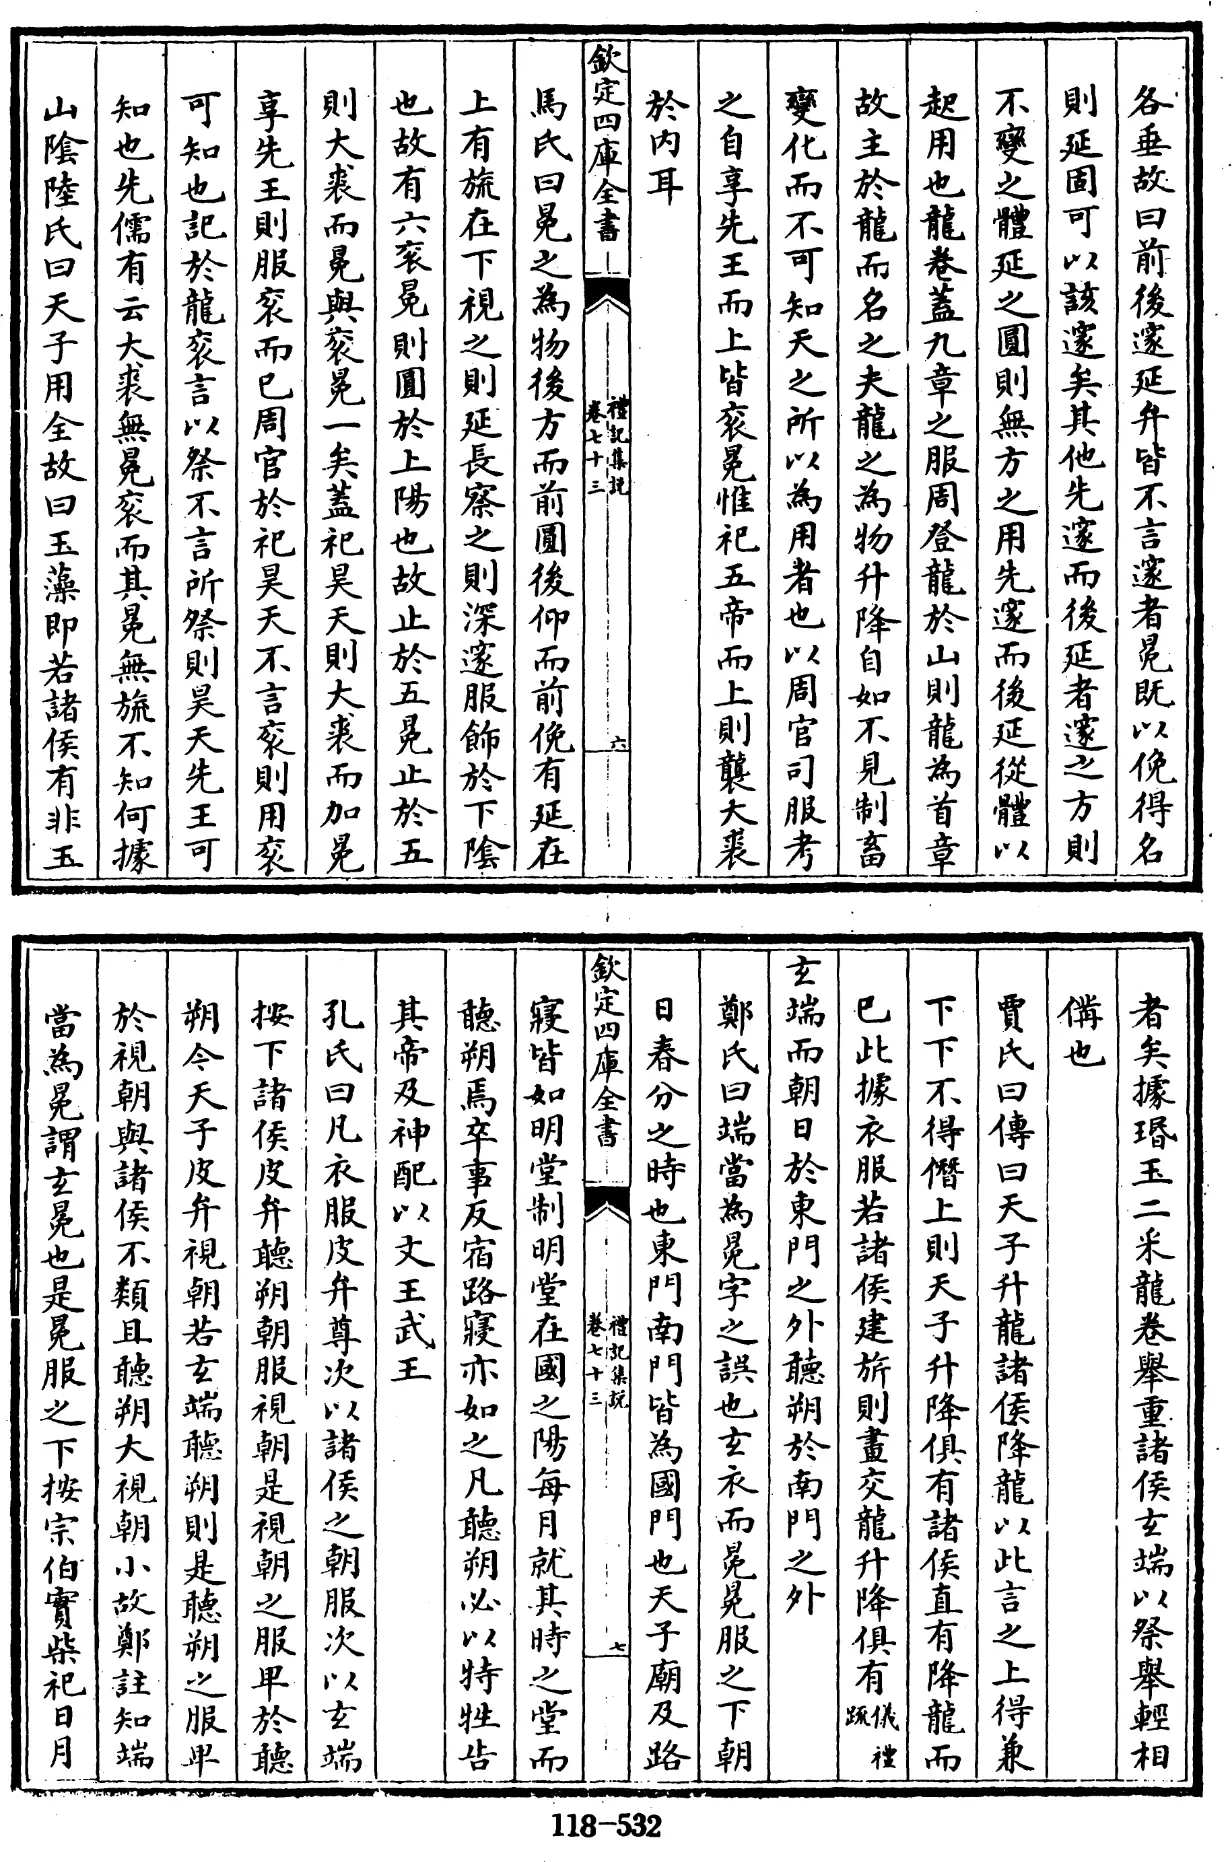 各垂故曰前後邃延弁皆不言邃者冕既以俛得名
則延固可以該邃矣其他先邃而後延者邃之方則
不變之體延之圓則無方之用先邃而後延從體以
起用也龍卷蓋九章之服周登龍於山則龍為首章
故主於龍而名之夫龍之為物升降自如不見制畜
變化而不可知天之所以為用者也以周官司服考
之自享先王而上皆衮冕惟祀五帝而上則襲大裘
於内耳
欽定四庫全書
禮記集説
卷七十三
六
馬氏曰冕之為物後方而前圓後仰而前俛有延在
上有旒在下視之則延長察之則深邃服飾於下陰
也故有六衮冕則圓於上陽也故止於五冕止於五
則大裘而冕與衮冕一矣蓋祀昊天則大裘而加冕
享先王則服衮而已周官於祀昊天不言衮則用衮
可知也記於龍衮言以祭不言所祭則昊天先王可
知也先儒有云大裘無冕衮而其冕無旒不知何據
山陰陸氏曰天子用全故曰玉藻即若諸侯有非玉
者矣據瑉玉二采龍卷舉重諸侯玄端以祭舉輕相
備也
賈氏曰傳曰天子升龍諸侯降龍以此言之上得兼
下下不得僭上則天子升降俱有諸侯直有降龍而
已此據衣服若諸侯建旂則畫交龍升降俱有儀禮疏
玄端而朝日於東門之外聽朔於南門之外
鄭氏曰端當為冕字之誤也玄衣而冕冕服之下朝
日春分之時也東門南門皆為國門也天子廟及路
欽定四庫全書
禮記集説
卷七十三
七
寢皆如明堂制明堂在國之陽每月就其時之堂而
聽朔焉卒事反宿路寢亦如之凡聽朔必以特牲告
其帝及神配以文王武王
孔氏曰凡衣服皮弁尊次以諸侯之朝服次以玄端
按下諸侯皮弁聽朔朝服視朝是視朝之服卑於聽
朔今天子皮弁視朝若玄端聽朔則是聽朔之服卑
於視朝與諸侯不類且聽朔大視朝小故鄭註知端
當為冕謂玄冕也是冕服之下按宗伯實柴祀日月
118-532